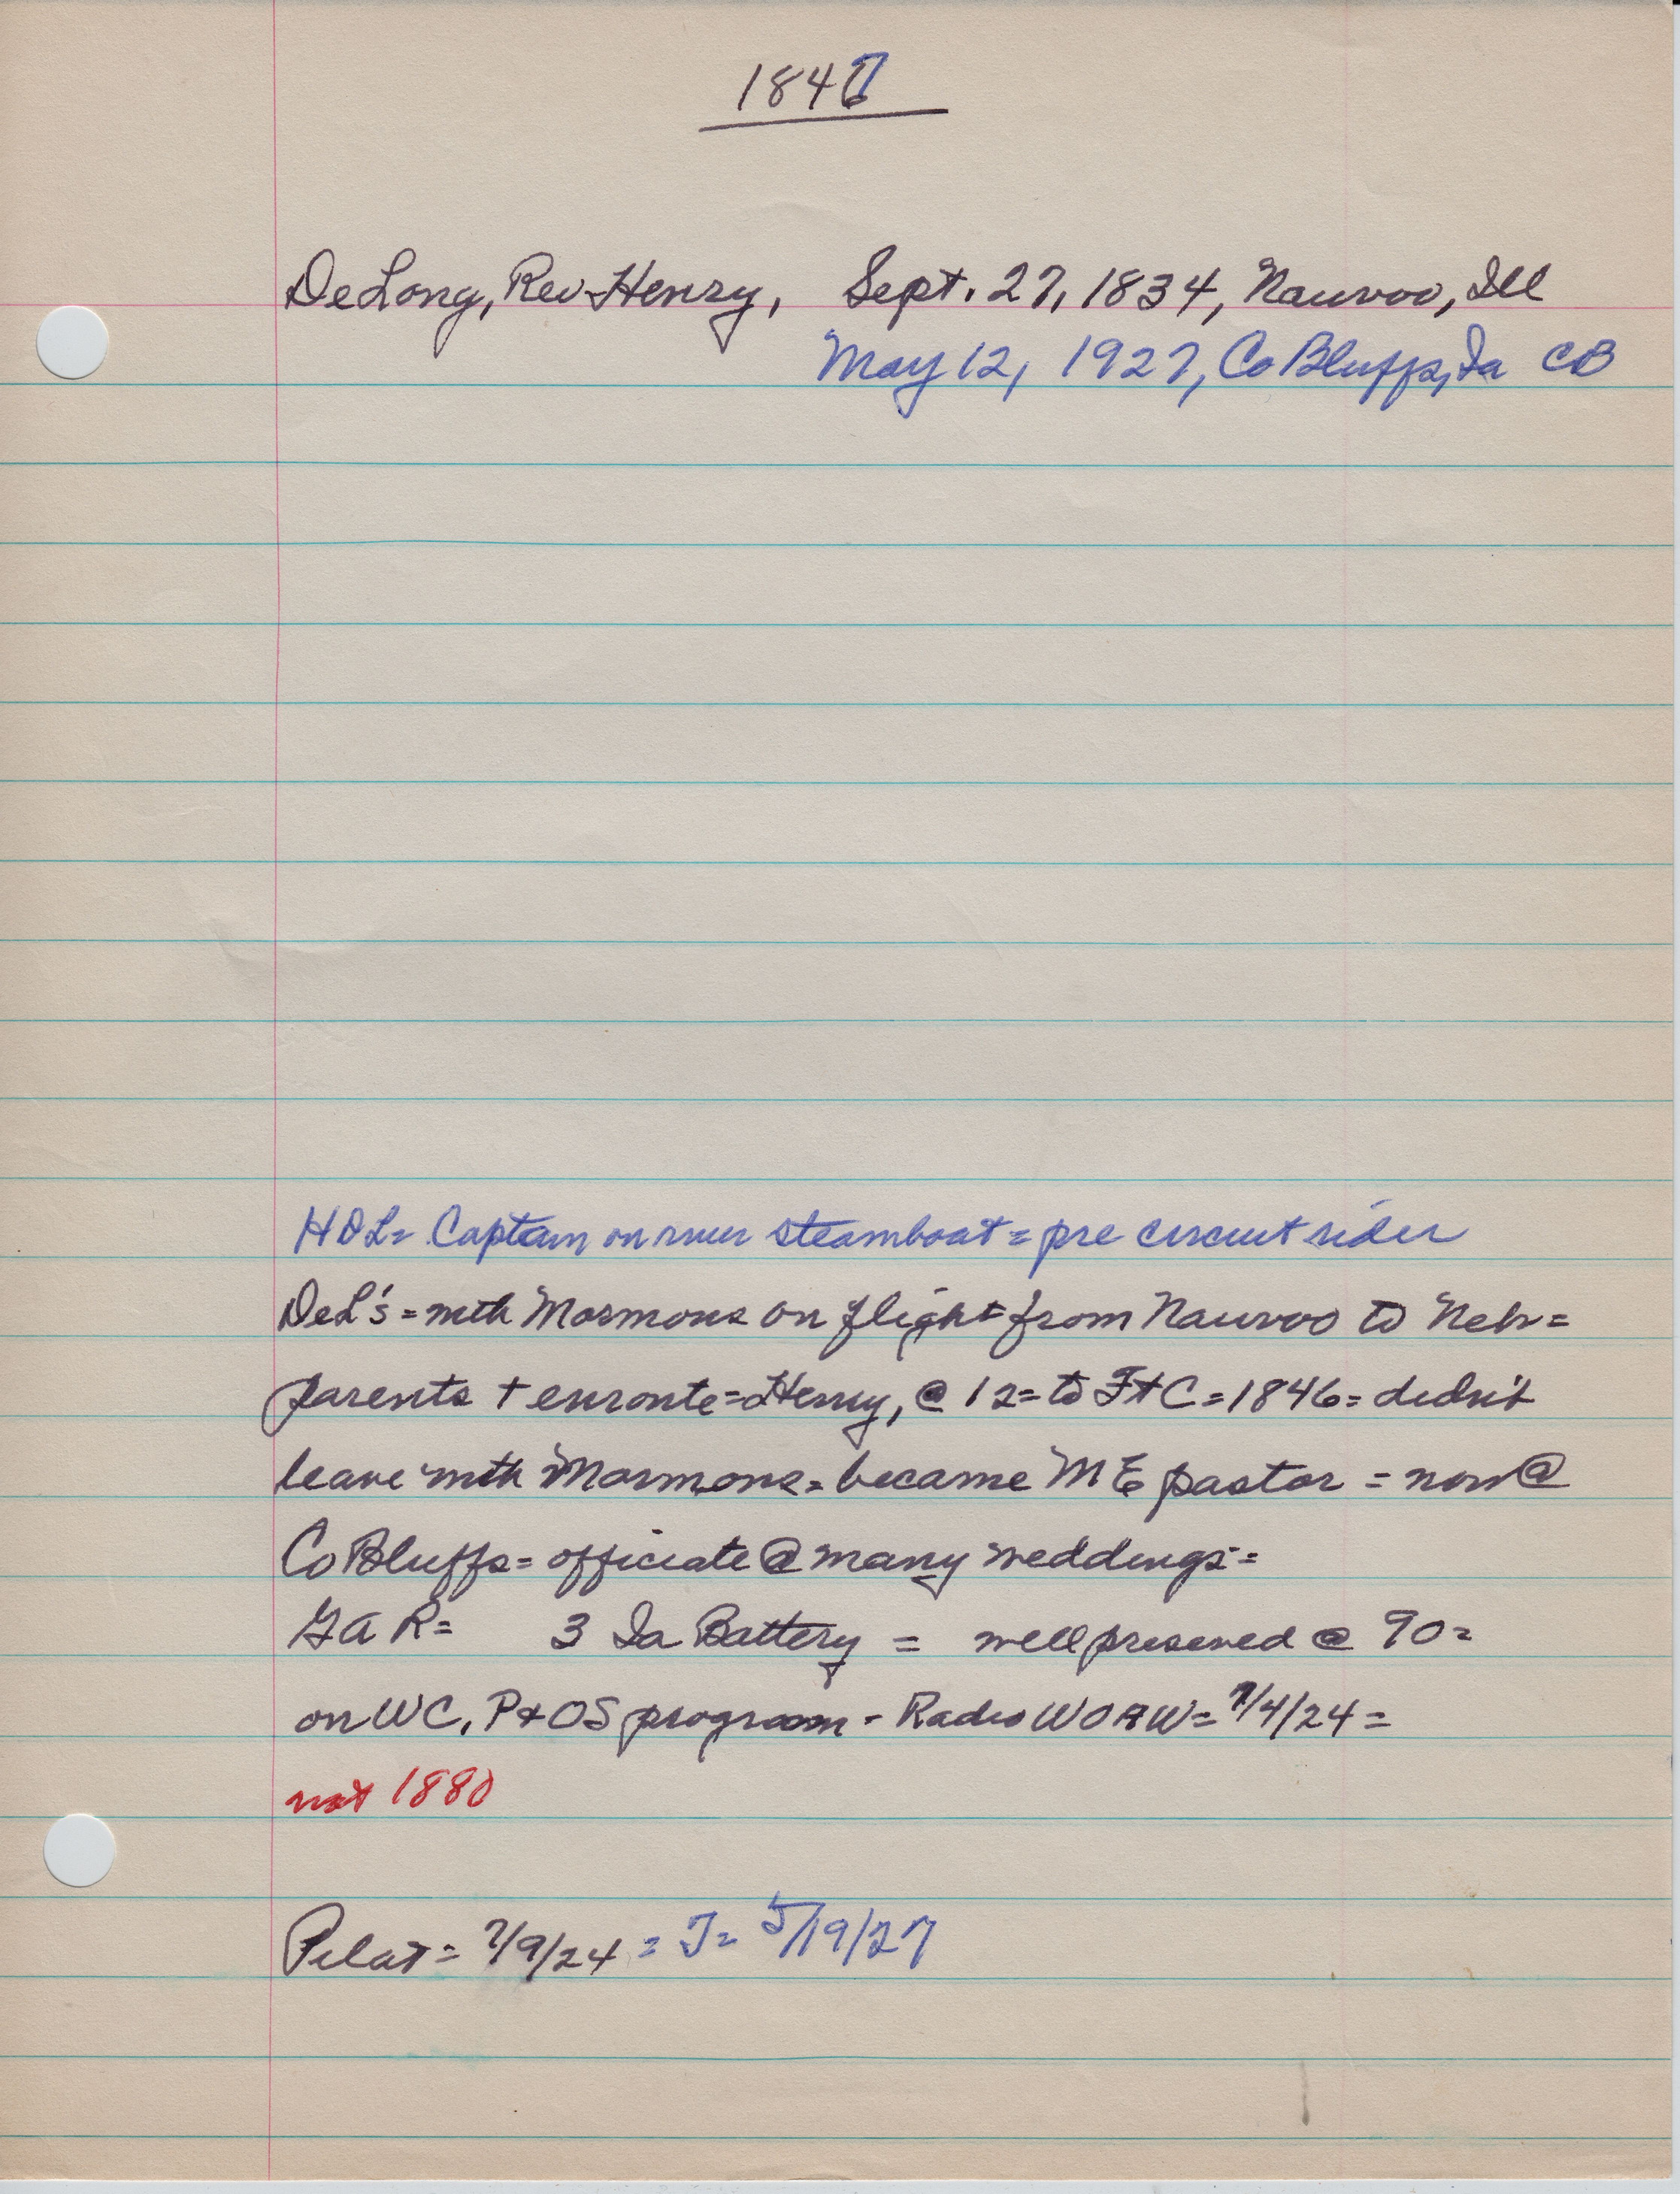 1847
DeLong, Rev Henry, Sept. 27, 1834, Nauvoo, Ill
May 12, 1927, Co Bluffs, Ia CB
HDL= Captain on river steamboat = pre circuit rider
DeL's = with Mormons on flight from Nauvoo to Neb =
parents + enroute = Henry, @ 12 = to Ft C = 1846 = didn't
leave with Mormons = became ME pastor = now @
Co Bluffs = officiate @ many weddings =
GAR= 3 Ia Battery = well preserved @ 90 =
on WC, P+OS program - Radio WOAW = 7/4/24 =
not 1880
Pilat = 7/9/24 = J= 5/19/27